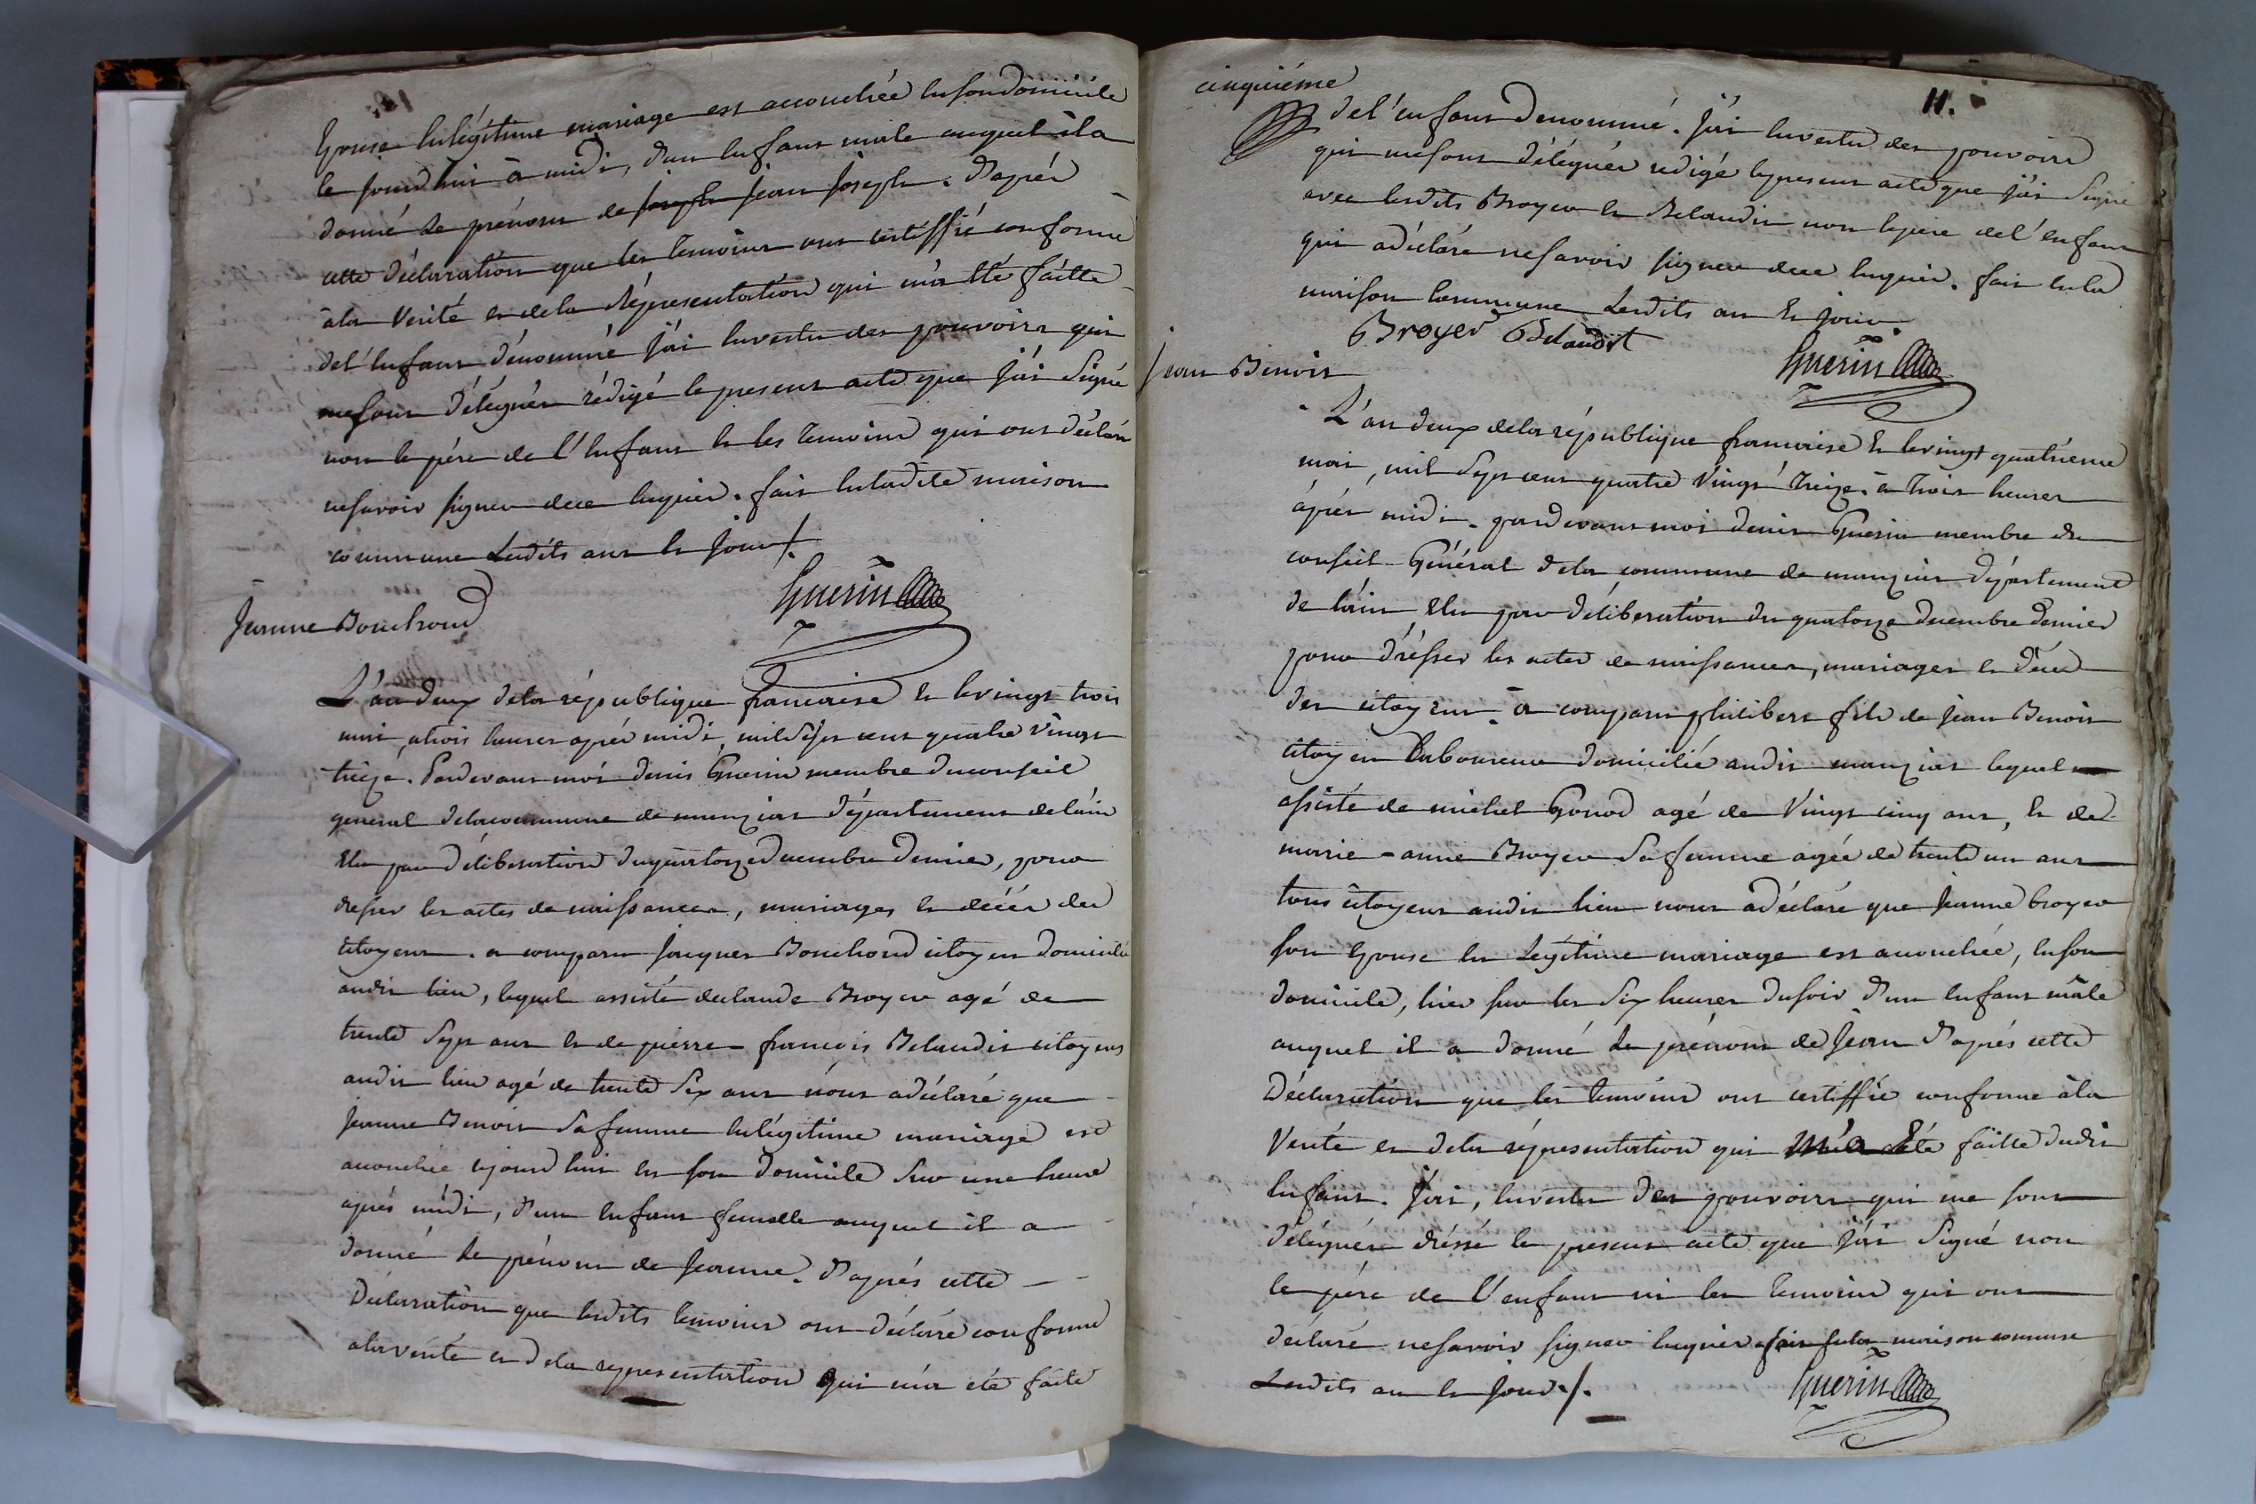 Epouse En légitime mariage est accouchée En son domicile
le jourd'hui à midi, d'un Enfant male auquel il a
donné le prénom de joseph jean joseph. d'après
cette déclaration que les temoins ont certiffié conforme
à la Verité et de la réprésentation qui m'a Eté faitte
del'Enfant dénommé j'ai Envertu des pouvoirs qui
mesont délégués rédigé le present acte que j'ai Signé
non le père de l'Enfant Et les temoins qui ont déclaré
nesavoir signer dece Enquis. fait En ladite maison
commune Lesdits an Et jour /.
Guerin
Jeanne Bouchoud
L'an deux dela république francaise Et levingt trois
mai, atrois heures après midi, mil Sept cent quatre Vingt
treize. Pardevant moi denis Guerin membre du conseil
general dela commune de manziat département de l'ain
Elu par déliberation du quatorze decembre dernier, pour
dresser les actes de naissances, mariages Et décés des
Citoyens. a comparu jacques Bouchoud citoyen domicilié
audit lieu, lequel assisté declaude Broyer agé de
trente Sept ans Et de pierre-francois Belaudit citoyens
audit lieu agé de trente Six ans nous adéclaré que
jeanne Benoit Sa femme Enlégitime mariage est
accouchée cejourd'hui En son domicile Sur une heure
après midi, d'un Enfant femelle auquel il a
donné le prénom de jeanne. d'après cette
Déclaration que lesdits temoins ont déclaré conforme
ala vérité et dela representation qui m'a été faite
cinquiéme
11.
del'enfant dénommé. j'ai Envertu des pouvoirs
qui mesont délégués redigé lepresent acte que j'ai Signé
avec lesdits Broyer Et Belaudit non lepère del'enfant
qui adéclaré nesavoir signer dece Enquis. fait En la
maison Commune Lesdits an Et jour.
Broyer Belaudit
Guerin
jean Benoit
L'an deux dela république francaise Et levingt quatriéme
mai, mil Sept cent quatre Vingt treize. a trois heures
aprés midi. pardevant moi denis Guerin membre du
conseil Général dela commune de manziat département
de l'ain Elu par déliberation du quatorze decembre dernier
pour drésser les actes de naissances, mariages et décés
des citoyens. à comparu philibert fils de jean Benoit
citoyen Laboureur domicilié audit manziat lequel
assisté de michel Gonod agé de Vingt cinq ans, Et de
marie-anne Broyer Sa femme agée de trente un ans
tous citoyens audit lieu nous adéclaré que jeanne broyer
son Epouse En Legitime mariage est accouchée, En son
domicile, hier sur les Six heures dusoir d'un Enfant mâle
auquel il a donné le prénom de Jean d'après cette
Déclaration que les temoins ont certiffié conforme àla
Verité et dela réprésentation qui m'a Eté faitte dudit
Enfant. j'ai, Envertu des pouvoirs qui me sont
délégués dréssé le present acte que j'ai Signé non
le pére de l'enfant ni les temoins qui ont
déclaré nesavoir signer Enquis fait En la maison commune
Lesdits an Et jour ./.
Guerin